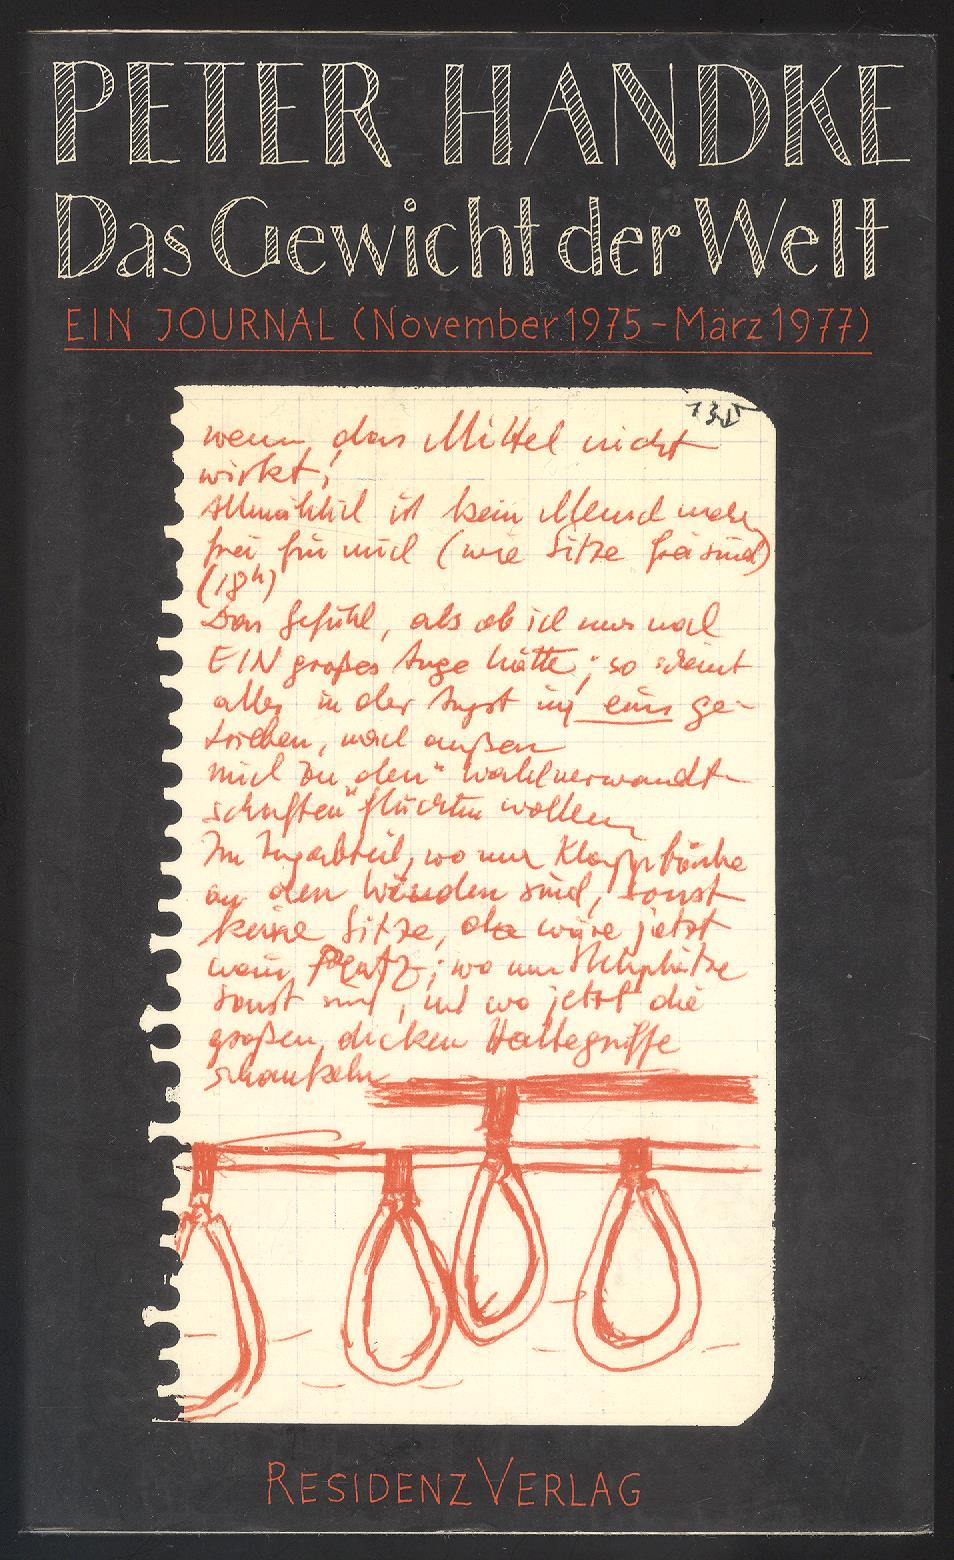 PETER HANDKE
Das Gewicht der Welt
EIN JOURNAL (November 1975 - März 1977)
wenn das Mittel nicht
wirkt!
Allmählich ist kein Mensch mehr
frei für mich (wie Sitze frei sind)
(18h)
Das Gefühl, als ob ich nur noch
EIN großes Auge hätte; so scheint
alles in der Angst in eins ge-
trieben, nach außen
mich zu den "Wahlverwandt-
schaften" flüchten wollen
Im Zugabteil, wo nur Klappbänke
an den Wänden sind, sonst
keine Sitze, da wäre jetzt
mein Platz; wo nur Stehplätze
sonst sind, und wo jetzt die
großen dicken Haltegriffe
schaukeln
RESIDENZ VERLAG